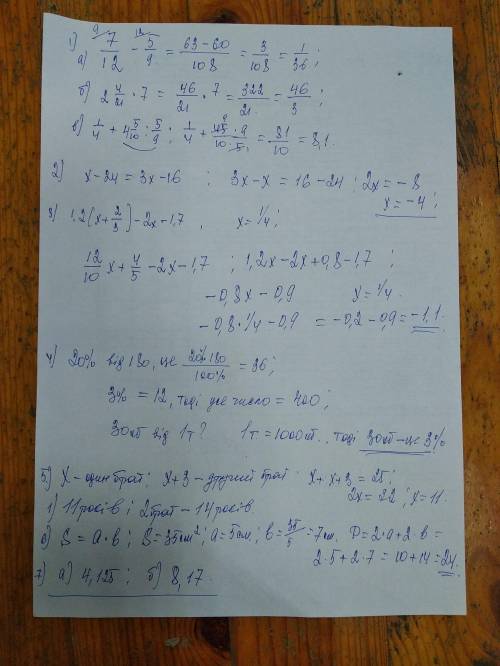 1)
а) 7/12 - 5/9 = (63-60)/108 = 3/108 = 1/36;
б) 2 4/21 · 7 = 46/21 · 7 = 322/21 = 46/3;
в) 1/4 + 4 5/10 : 5/9; 1/4 + 45 · 9/10 · 5 = 81/10 = 8,1.
2) x-24 = 3x-16 ; 3x-x = 16-24 ; 2x = -8
x = -4;
3) 1,2(x+2/3)-2x-1,7, x=1/4;
12/10 x + 4/5 - 2x-1,7 ; 1,2x-2x+0,8-1,7;
-0,8x - 0,9 x=1/4.
-0,8·1/4-0,9 = -0,2-0,9=-1,1.
4) 20% від 180, це 20%·180/100% = 36;
3% = 12, тоді усе число = 400;
30кг від 1т? 1т=1000кг., тоді 30кг-це 3%
5) X-один брат; x+3-другий брат x+x+3=25;
2x=22; x=11.
1) 11 росів; 2 брат - 14 росів.
6) S=a·b; S=35см²; a=5см; b=35/5=7см. P=2·a+2·b=
2·5+2·7=10+14=24.
7) а) 4,125; б) 8,17.